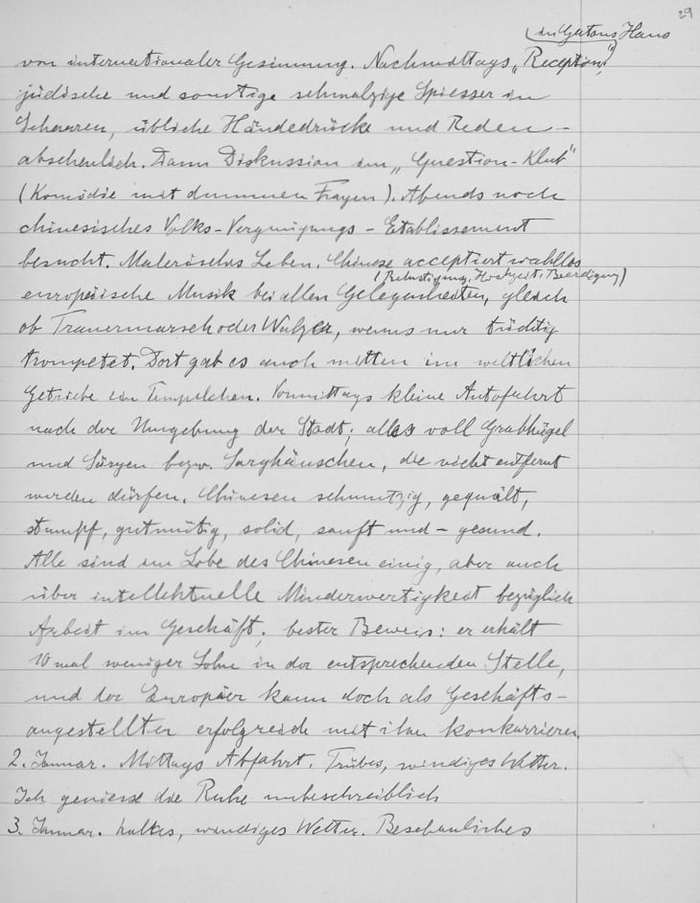 29
(in Gattons Haus)
von internationaler Gesinnung. Nachmittags „Reception",
jüdische und sonstige schmalzige Spiesser in
Scharen, übliche Händedrücke und Reden –
abscheulich. Dann Diskussion im „Question-Klub"
(Komödie mit dummen Fragen). Abends noch
chinesisches Volks-Vergnügungs-Etablissement
besucht. Malerisches Leben. Chinese acceptiert wahllos
(Belustigung, Hochzeit, Beerdigung)
europäische Musik bei allen Gelegenheiten, gleich
ob Trauermarsch oder Walzer, wenns nur tüchtig
trompetet. Dort gab es auch mitten im weltlichen
Getriebe ein Tempelchen. Vormittags kleine Autofahrt
nach der Umgebung der Stadt; alles voll Grabhügel
und Särgen bezw. Sarghäuschen, die nicht entfernt
werden dürfen. Chinesen schmutzig, gequält,
stumpf, gutmütig, solid, sanft und – gesund.
Alle sind im Lobe des Chinesen einig, aber auch
über intellektuelle Minderwertigkeit bezüglich
Arbeit im Geschäft; bester Beweis: er erhält
10 mal weniger Lohn in der entsprechenden Stelle,
und der Europäer kann doch als Geschäfts-
angestellter erfolgreich mit ihm konkurrieren.
2. Januar. Mittags Abfahrt. Trübes, windiges Wetter.
Ich geniesse die Ruhe unbeschreiblich
3. Januar. kaltes, windiges Wetter. Beschauliches